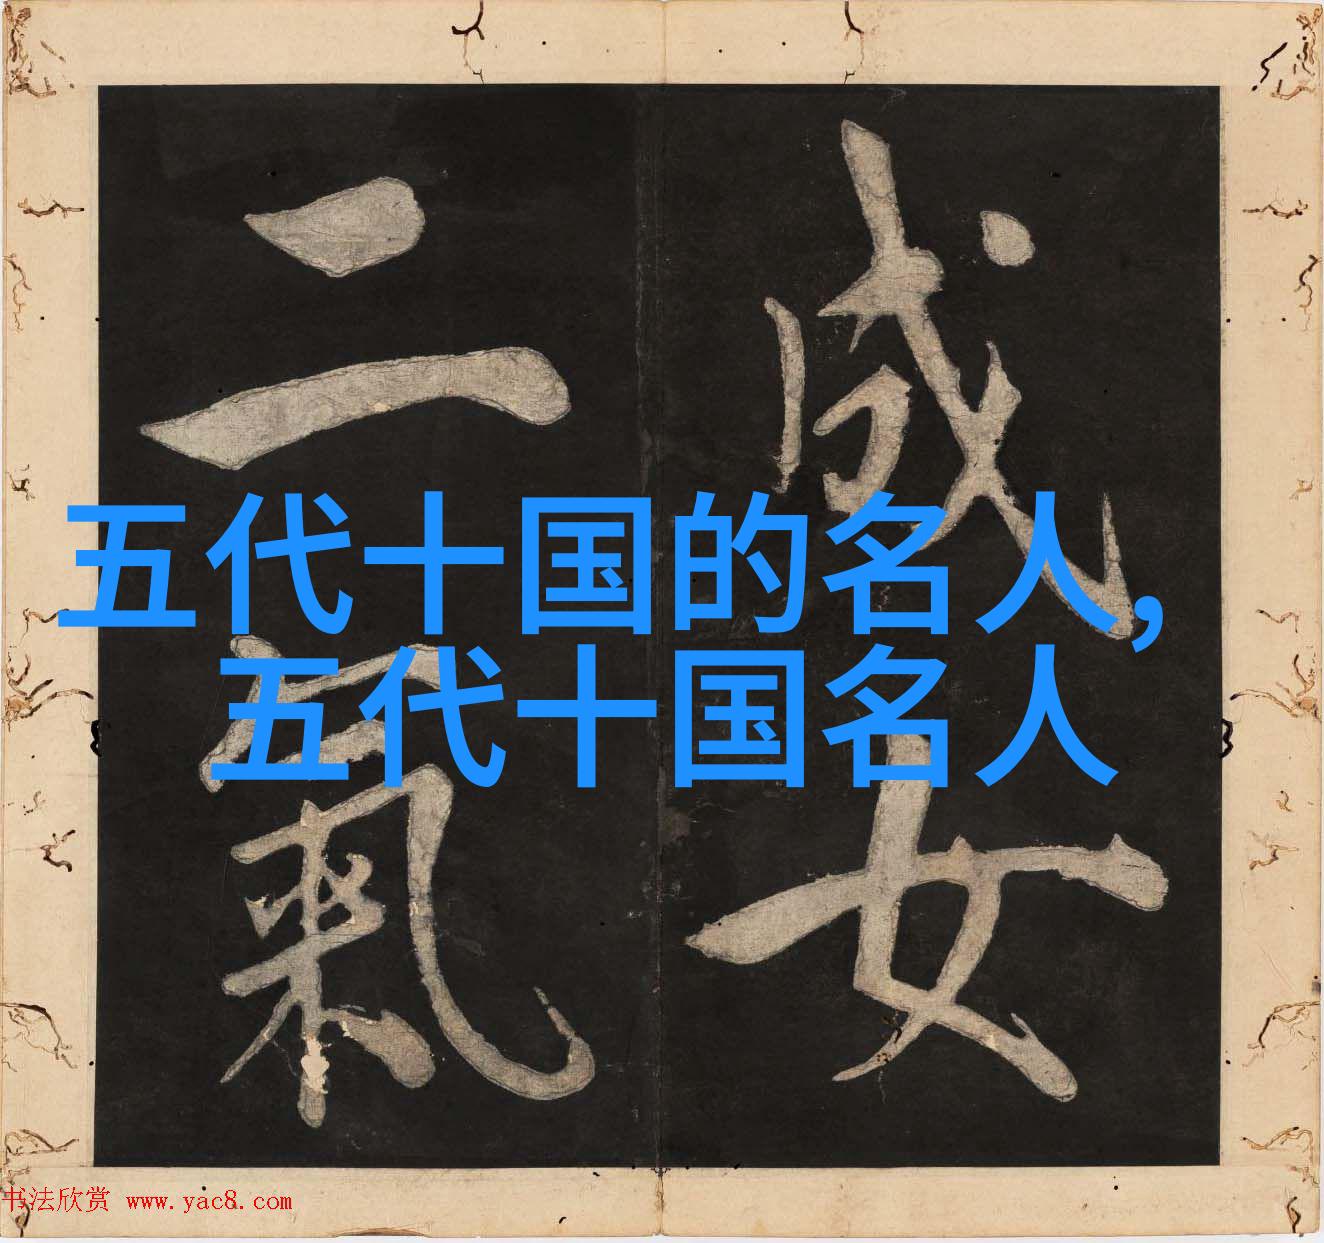 成女
二氣
五代十国的名人,
五代十国名人
书法欣赏 www.yac8.com